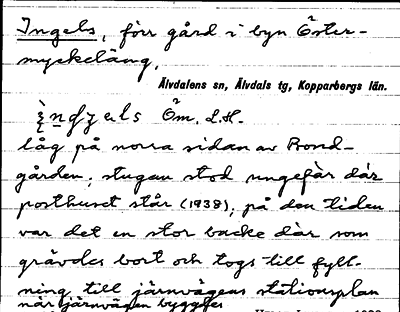 Ingels, förr gård i byn Öster-
myckeläng.
Älvdalens sn, Älvdals tg, Kopparbergs län.
Öm. L.H.
låg på norra sidan av Bond-
gården; stugan stod ungefär där
posthuset står (1938); på den tiden
var det en stor backe där som
grävdes bort och togs till fyll-
ning till järnvägens stationsplan
när järnvägen byggdes